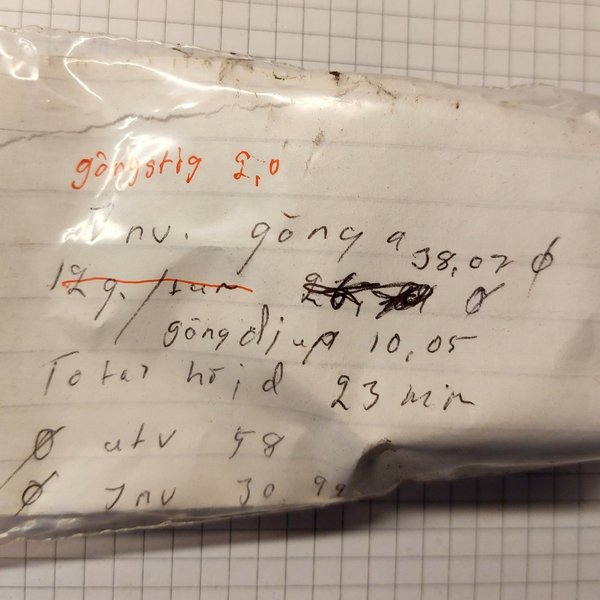 gängstig 2,0
Inv. gänga 38,02 Ø
12g./tum Ø
gängdjup 10,05
Total höjd 23 min
Ø utv 58
Ø Inv 30.99